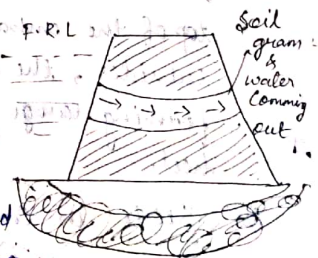 F.R.L
Soil
gram
&
water
Comming
out